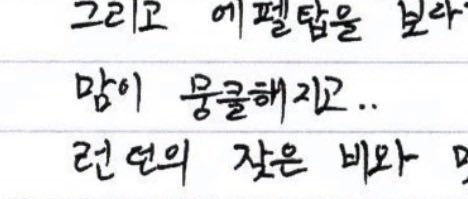 그리고 에펠탑을 보다
맘이 뭉쿨해지고..
런던의 잦은 비와